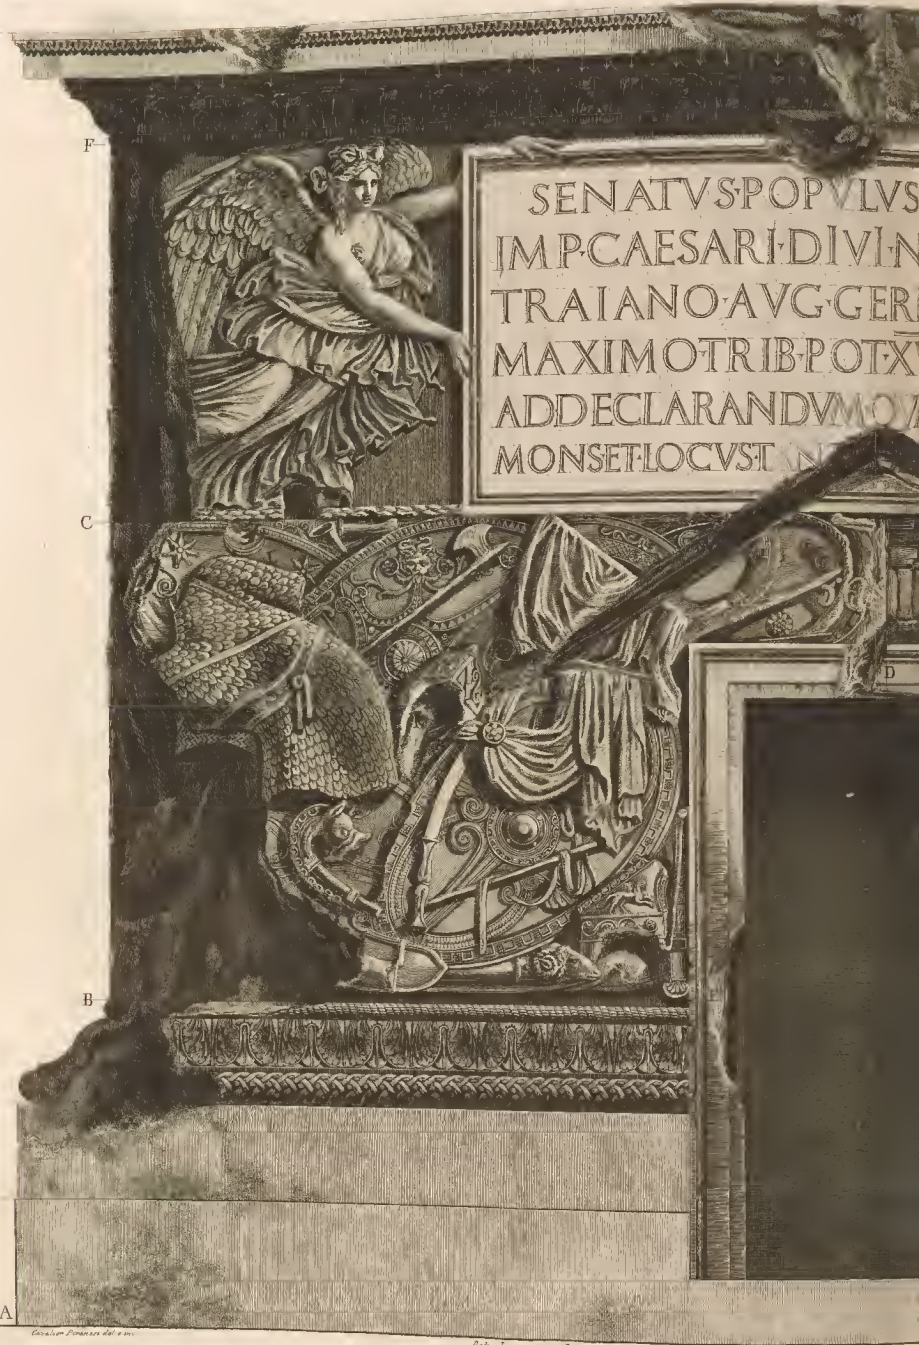 F
SENATVS·POPVLVS
IMP·CAESARI·DIVI·N
TRAIANO·AVG·GER
MAXIMO·TRIB·POT·X
AD·DECLARANDVM
MONS·ET·LOCVS·T
C
D
B
A
Cavalier Piranesi del. e inc.